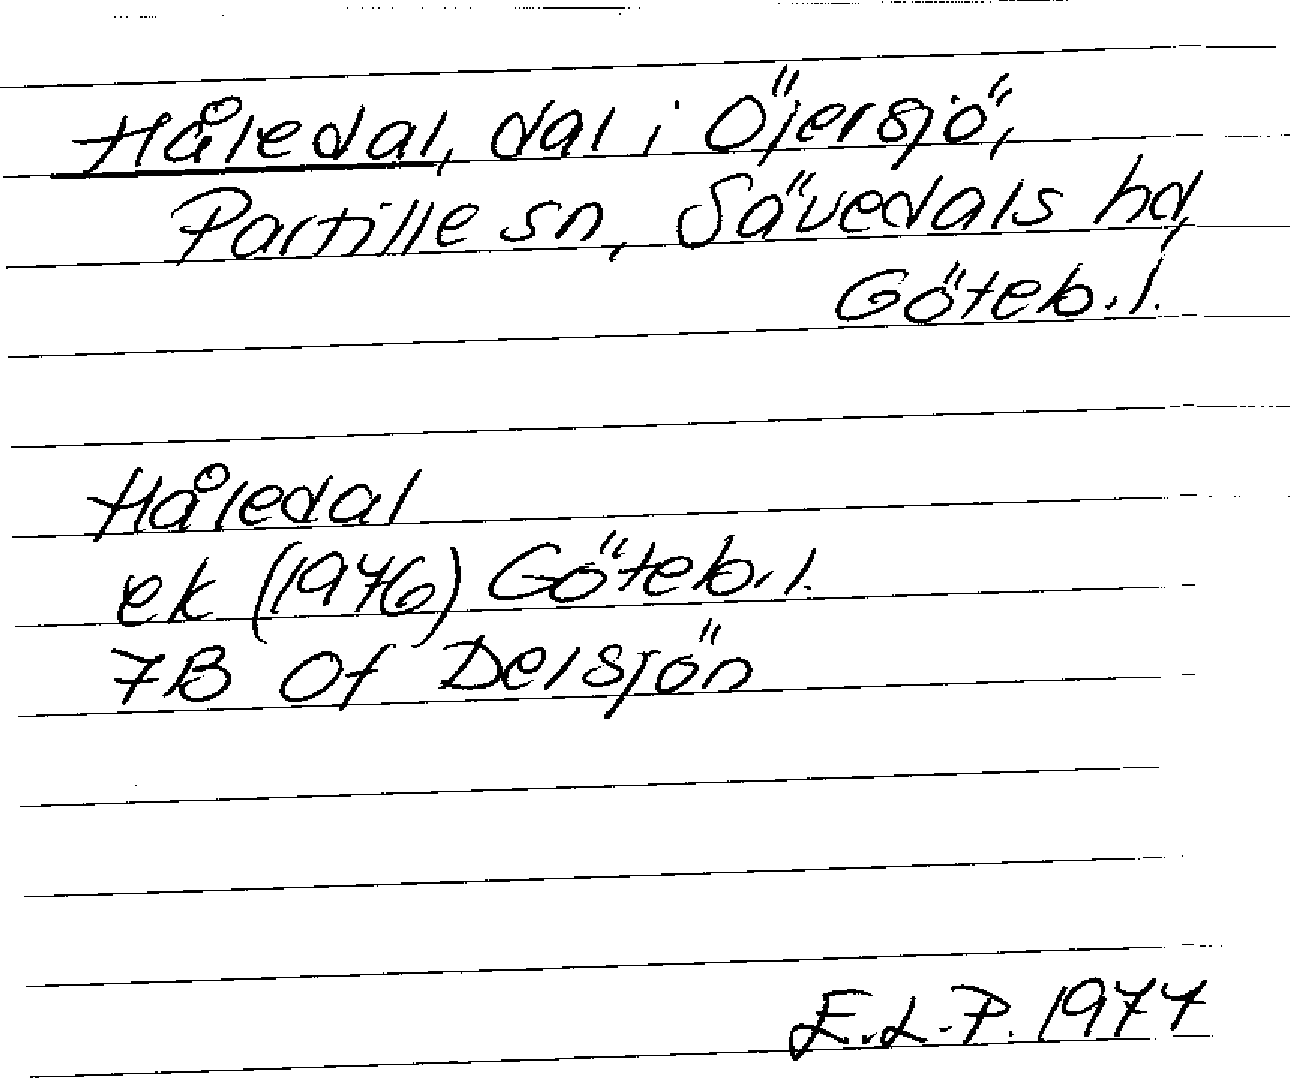 Håledal, dal i Öjersjö,
Partille sn, Sävedals hd,
Göteb. l.
Håledal
ek (1976) Göteb. l.
7B Of Delsjön
E.L.P. 1977